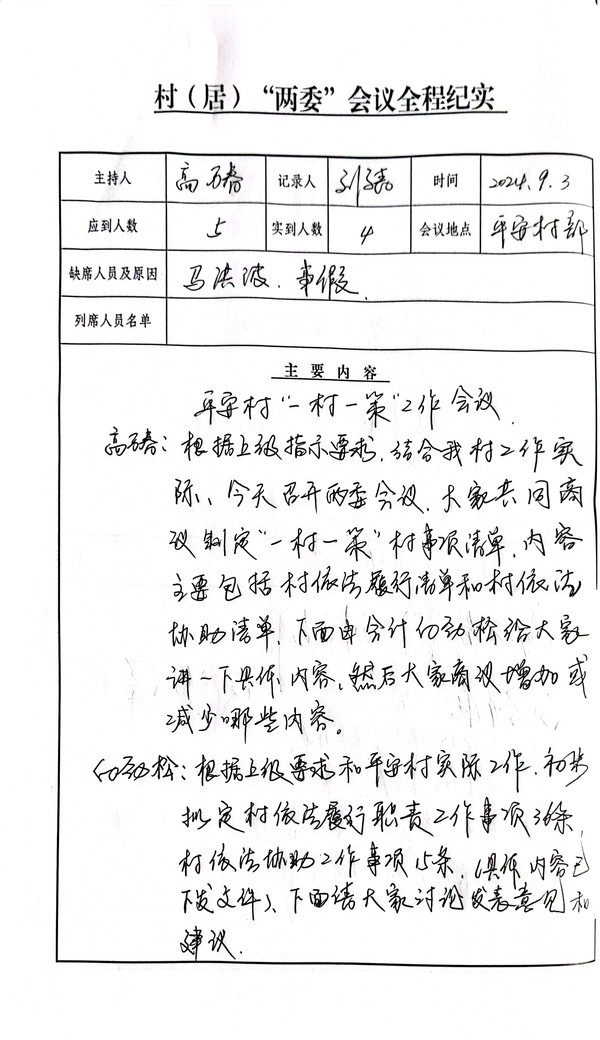 村（居）“两委”会议全程纪实
主持人 高万春 记录人 刘 时间 2024.9.3
应到人数 5 实到人数 4 会议地点 平安村部
缺席人员及原因 马洪波、事假
列席人员名单
主要内容
平安村“一村一策”工作会议
高万春：根据上级指示要求，结合我村工作实
际，今天召开两委会议，大家共同商
议制定“一村一策”村事项清单，内容
主要包括村依法履行清单和村依法
协助清单，下面由会计劲松给大家
讲一下具体内容，然后大家商议增加或
减少哪些内容。
劲松：根据上级要求和平安村实际工作，初步
拟定村依法履行职责工作事项36条，
村依法协助工作事项15条，（具体内容已
下发文件）、下面请大家讨论发表意见和
建议.